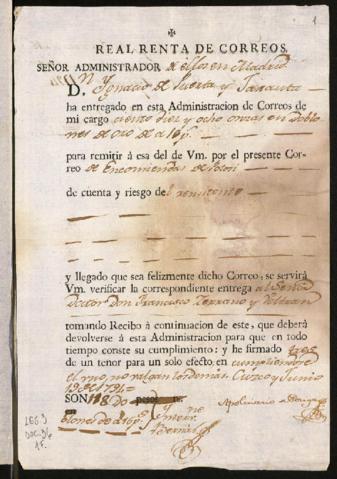 1
REAL RENTA DE CORREOS.
SEÑOR ADMINISTRADOR de ellos en Madrid
D.n Ygnacio de Huerta y
ha entregado en esta Administracion de Correos de
mi cargo ciento diez y ocho onzas en Doblo
nes de oro de a 16 ps.
para remitir á esa del de Vm. por el presente Cor-
reo de Encomiendas de Potosi
de cuenta y riesgo del remitente
y llegado que sea felizmente dicho Correo, se servirá
Vm. verificar la correspondiente entrega al Señor
Doctor Don Francisco Serrano y Beltran
tomando Recibo á continuacion de este, que deberá
devolverse á esta Administracion para que en todo
tiempo conste su cumplimiento: y he firmado tres
de un tenor para un solo efecto en cumpliendose
el uno no valgan los demás. Cuzco y Junio
SON 118 Do
blones de a 16 ps.
LEG 3